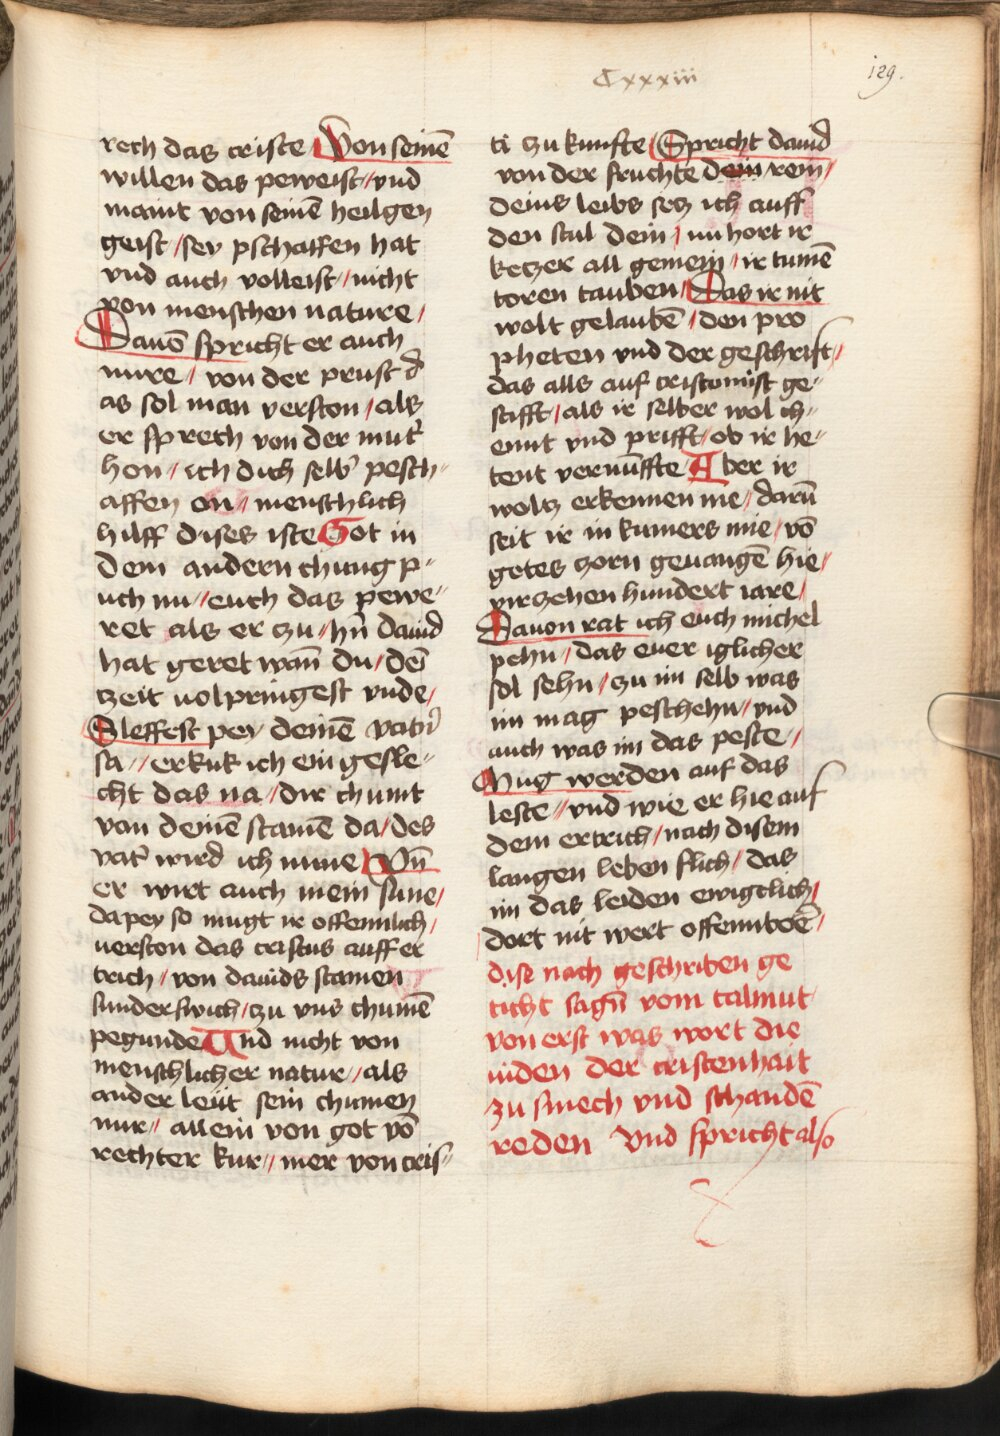 Cxxxiii
129.
rech das criste / Von seinē
willen das peweist / vnd
maint von seinē heilgen
geist / sey pschaffen hat
vnd auch volleist / nicht
von menschen nature /
Dauō spricht er auch
mire / von der prust d
as sol man verston / als
er sprech von der mut'
hon / ich dich selb' pesch-
affen on / menschlich
hilff dises iste Got in
dem andern chung p-
uch nu / euch das pewe-
ret als er zu / hn̄ dauid
hat geret wan̄ du / dei
tzeit uolpringest vnde /
Sleffest pey deinē vatn̄
sa / erkuk ich ein gesle-
cht das na / dir chumt
von deinē stamē da / des
vat' wird ich mine / Vn̄
er wirt auch mein sune /
dapey so mugt ir offennlich /
uerston das cristus auff er
trich / von dauids stamen
sunderswich / zu vns chumē
pegunde And nicht von
menschlicher natur / als
ander leüt sein chumen
nur / allein von got vō
rechter kur / mer von cris-
ti zu kunfte / Spricht dauid
von der fruchte dein rein /
deins leibs secz ich auff
den stul dein / nu hort ir
keczer all gemein / ir tumē
toren tauben / Das ir nit
wolt gelaubē / den pro
pheten vnd der geschrift /
das alls auf cristom ist ge-
stifft / als ir selber wol ch-
ennt vnd prifft / ob ir he-
tent vernūffte / Aber ir
woltz erkennen nie / darū
seit ir in kumers mie / vō
gotes zorn geuangē hie /
virzehen hundert iare /
Dauon rat ich euch michel
pehn / das euer iglicher
sol sehn / zu im selb was
im mag peschehn / vnd
auch was im das peste /
Mug werden auf das
leste / vnd wie er hie auf
dem ertrich / nach disem
langen leben slich / das
im das leiden ewigclich /
dort nit wert offennboē /
dise nach geschriben ge
ticht sagn̄ vom talmut
von erst was wort die
iuden der cristenhait
zu smech vnd schandē
reden Vnd spricht also